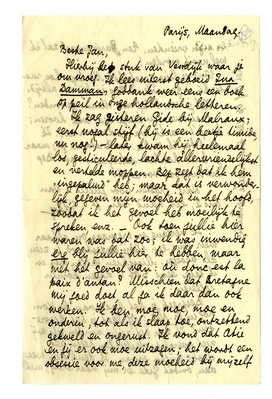 Parijs, Maandag.
Beste Jan,
Hierbij het stuk van Vendyk waar je
om vroeg. Ik lees uiterst geboeid Ena
Dammans; Godbank weer eens een boek
op peil in onze hollandsche letteren.
Ik zag gisteren Gide bij Malraux;
eerst nogal stijf (hij is een beetje timide,
nu nog!) – later kwam hij heelemaal
los, gesticuleerde, lachte allervriendelijkst
en vertelde moppen. Bep zegt dat ik hem
"ingepalmd" heb; maar dat is verwonder-
lijk, gegeven mijn moeheid in het hoofd,
zoodat ik het gevoel heb moeilijk te
spreken, enz. – Ook toen jullie hier
waren was dat zoo; ik was inwendig
erg blij jullie hier te hebben, maar
met het gevoel van: où donc est la
paix d'antan? Misschien dat Bretagne
mij goed doet al ga ik daar dan ook
werken. Ik ben moe, moe, moe en
onderin, tot als ik slaap toe, ontzettend
gekweld en ongerust. Ik vond dat Atie
en jij er ook moe uitzagen; het wordt een
obsessie voor me, deze moeheid bij mijzelf